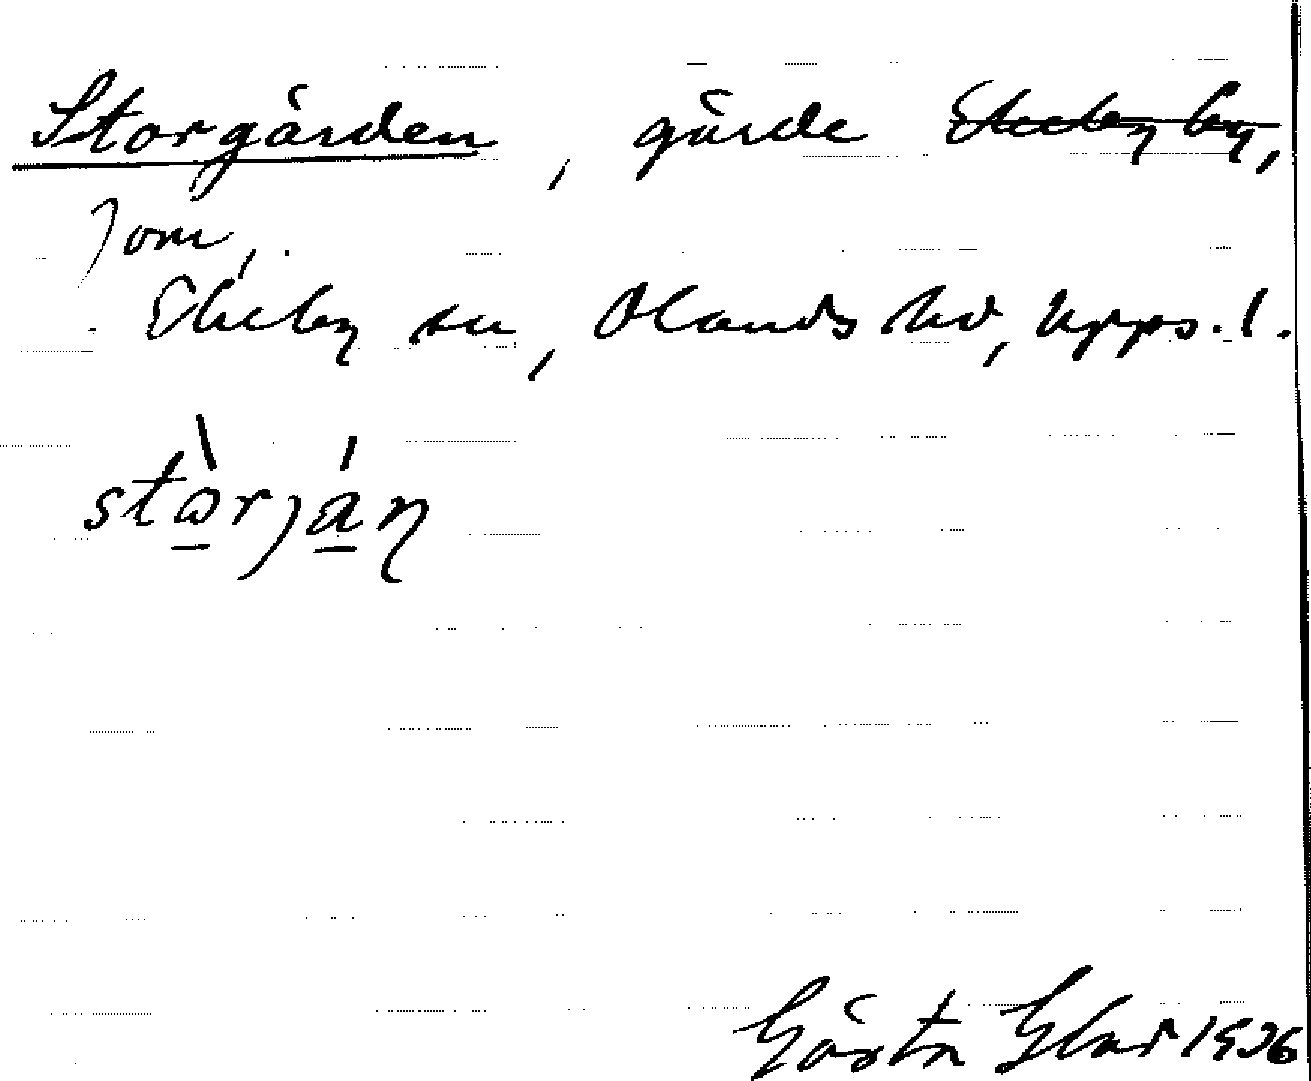 Storgården, gärde Ekeby by,
Jom,
Ekeby sn, Olands hd, Upps. l.
stòrján
Gösta Elar 1926